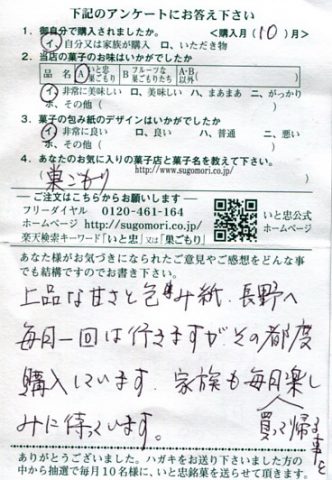 下記のアンケートにお答え下さい
1. 御自分で購入されましたか。 <購入月( 10 )月>
イ. 自分又は家族が購入 ロ. いただき物
2. 当店の菓子のお味はいかがでしたか
品 名 A いと忠巣ごもり B フルーツな巣ごもりたち A・B以外( )
イ. 非常に美味しい ロ. 美味しい ハ. まあまあ ニ. がっかり
ホ. その他( )
3. 菓子の包み紙のデザインはいかがでしたか
イ. 非常に良い ロ. 良い ハ. 普通 ニ. 悪い
ホ. その他( )
4. あなたのお気に入りの菓子店と菓子名を教えて下さい。
( 巣ごもり http://www.sugomori.co.jp/ )
ご注文はこちらからお願いします
フリーダイヤル 0120-461-164
ホームページ http://www.sugomori.co.jp/
楽天検索キーワード「いと忠」又は「巣ごもり」
いと忠公式ホームページ
あなた様がお気づきになられたご意見やご感想をどんな事でも結構ですのでお書き下さい。
上品な甘さと包み紙、長野へ
毎月一回は行きますが、その都度
購入しています。家族も毎月楽し
みに待っています。
買って帰る事を
ありがとうございました。ハガキをお送り下さいました方の
中から抽選で毎月10名様に、いと忠銘菓を送らせて頂きます。